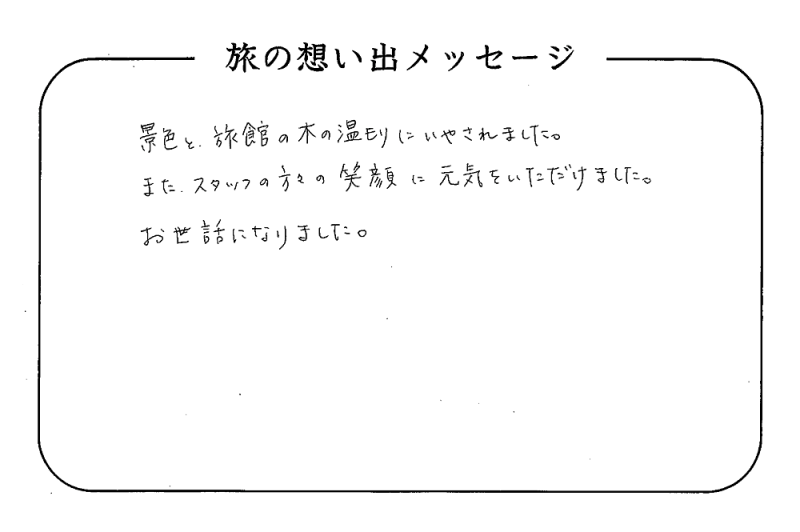 旅の想い出メッセージ
景色と、旅館の木の温もりにいやされました。
また、スタッフの方々の笑顔に元気をいただけました。
お世話になりました。